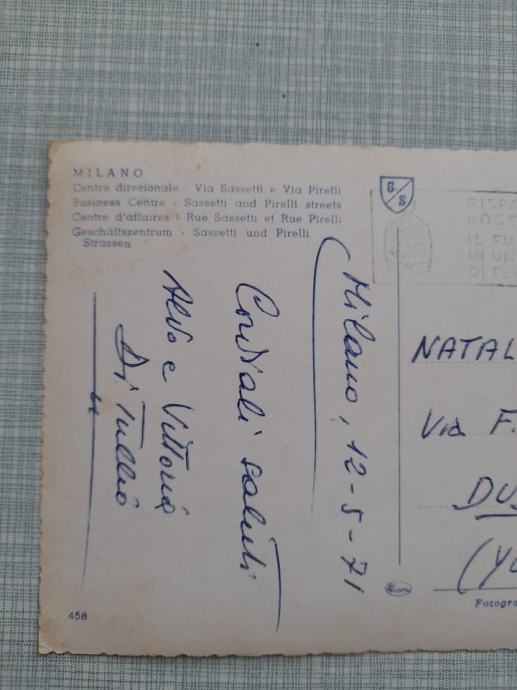 MILANO
Centro direzionale - Via Sassetti e Via Pirelli
Business Centre - Sassetti and Pirelli streets
Centre d'affaires - Rue Sassetti et Rue Pirelli
Geschäftszentrum - Sassetti und Pirelli
Strassen
G
S
RISPA
POST
IL FU
IN UN
DI FE
Milano, 12-5-71
Cordiali saluti
Aldo e Vittoria
Di Tullio
NATAL
Via F.
DU
(YU
458
Fotogra